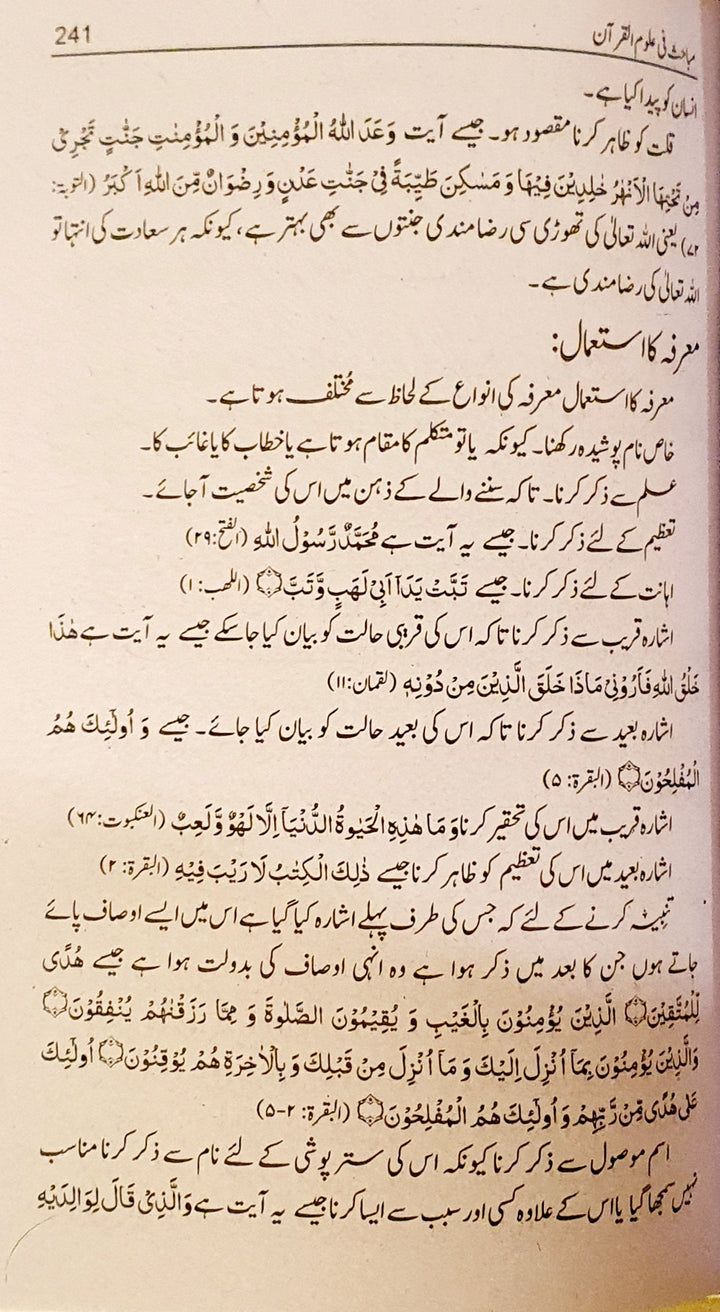 مباحث فی علوم القرآن 241
انسان کو پیدا کیا ہے۔
قلت کو ظاہر کرنا مقصود ہو۔ جیسے آیت وَعَدَ اللّٰهُ الْمُؤْمِنِیْنَ وَ الْمُؤْمِنٰتِ جَنّٰتٍ تَجْرِیْ
مِنْ تَحْتِهَا الْاَنْهٰرُ خٰلِدِیْنَ فِیْهَا وَ مَسٰكِنَ طَیِّبَةً فِیْ جَنّٰتِ عَدْنٍ وَ رِضْوَانٌ مِّنَ اللّٰهِ اَكْبَرُ (التوبۃ:
۷۲) یعنی اللہ تعالیٰ کی تھوڑی سی رضامندی جنتوں سے بھی بہتر ہے، کیونکہ ہر سعادت کی انتہا تو
اللہ تعالیٰ کی رضامندی ہے۔
معرفہ کا استعمال:
معرفہ کا استعمال معرفہ کی انواع کے لحاظ سے مُختلف ہوتا ہے۔
خاص نام پوشیدہ رکھنا۔ کیونکہ یا تو متکلم کا مقام ہوتا ہے یا خطاب کا یا غائب کا۔
علم سے ذکر کرنا۔ تاکہ سننے والے کے ذہن میں اس کی شخصیت آجائے۔
تعظیم کے لئے ذکر کرنا۔ جیسے یہ آیت ہے مُحَمَّدٌ رَّسُوْلُ اللّٰهِ (الفتح:۲۹)
اہانت کے لئے ذکر کرنا۔ جیسے تَبَّتْ یَدَاۤ اَبِیْ لَهَبٍ وَّ تَبَّ۝ (اللھب:۱)
اشارہ قریب سے ذکر کرنا تاکہ اس کی قریبی حالت کو بیان کیا جاسکے جیسے یہ آیت ہے هٰذَا
خَلْقُ اللّٰهِ فَاَرُوْنِیْ مَاذَا خَلَقَ الَّذِیْنَ مِنْ دُوْنِهٖ (لقمان:۱۱)
اشارہ بعید سے ذکر کرنا تاکہ اس کی بعید حالت کو بیان کیا جائے۔ جیسے وَ اُولٰٓىِٕكَ هُمُ
الْمُفْلِحُوْنَ۝ (البقرۃ:۵)
اشارہ قریب میں اس کی تحقیر کرنا وَ مَا هٰذِهِ الْحَیٰوةُ الدُّنْیَاۤ اِلَّا لَهْوٌ وَّ لَعِبٌ (العنکبوت:۶۴)
اشارہ بعید میں اس کی تعظیم کو ظاہر کرنا جیسے ذٰلِكَ الْكِتٰبُ لَا رَیْبَ فِیْهِ (البقرۃ:۲)
تنبیہ کرنے کے لئے کہ جس کی طرف پہلے اشارہ کیا گیا ہے اس میں ایسے اوصاف پائے
جاتے ہوں جن کا بعد میں ذکر ہوا ہے وہ انہی اوصاف کی بدولت ہوا ہے جیسے هُدًی
لِّلْمُتَّقِیْنَ۝ الَّذِیْنَ یُؤْمِنُوْنَ بِالْغَیْبِ وَ یُقِیْمُوْنَ الصَّلٰوةَ وَ مِمَّا رَزَقْنٰهُمْ یُنْفِقُوْنَ۝
وَالَّذِیْنَ یُؤْمِنُوْنَ بِمَاۤ اُنْزِلَ اِلَیْكَ وَ مَاۤ اُنْزِلَ مِنْ قَبْلِكَ وَ بِالْاٰخِرَةِ هُمْ یُوْقِنُوْنَ۝ اُولٰٓىِٕكَ
عَلٰی هُدًی مِّنْ رَّبِّهِمْ وَ اُولٰٓىِٕكَ هُمُ الْمُفْلِحُوْنَ۝ (البقرۃ: ۲-۵)
اسم موصول سے ذکر کرنا کیونکہ اس کی ستر پوشی کے لئے نام سے ذکر کرنا مناسب
نہیں سمجھا گیا یا اس کے علاوہ کسی اور سبب سے ایسا کرنا جیسے یہ آیت ہے وَالَّذِیْ قَالَ لِوَالِدَیْهِ